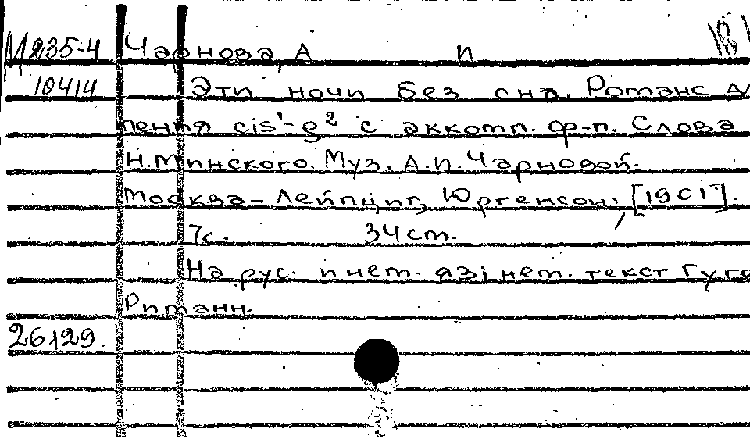 М235-4 Чарнова, А И
10414 Эти ночи без сна. Романс дл
пения cis¹-g² с аккомп. ф-п. Слова
Н. Минского. Муз. А.И. Чарновой.
Москва-Лейпциг, Юргенсон, [19
7с. 34 см.
На рус. и нем. яз; нем. текст Гуго
Риманн.
26129.